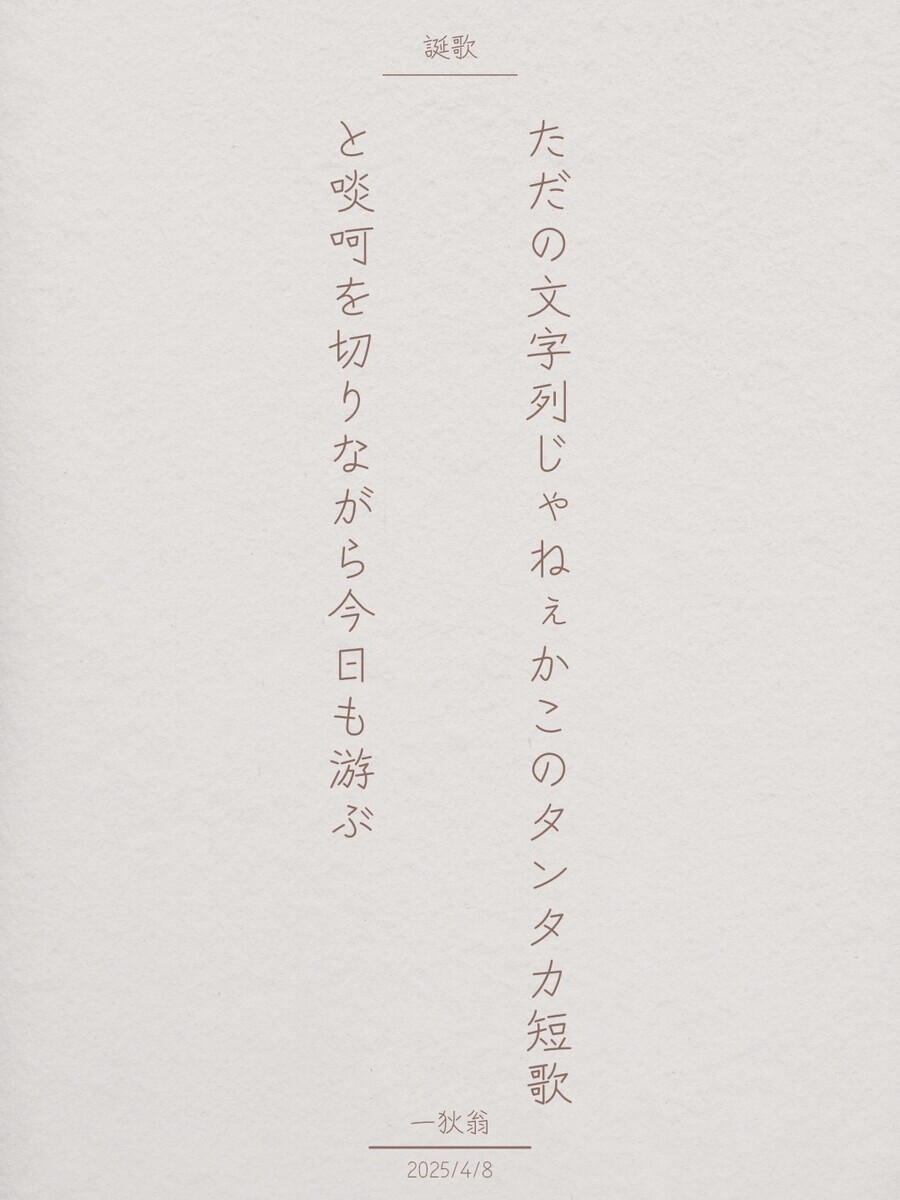 誕歌
ただの文字列じゃねぇかこのタンタカ短歌
と啖呵を切りながら今日も游ぶ
一狄翁
2025/4/8